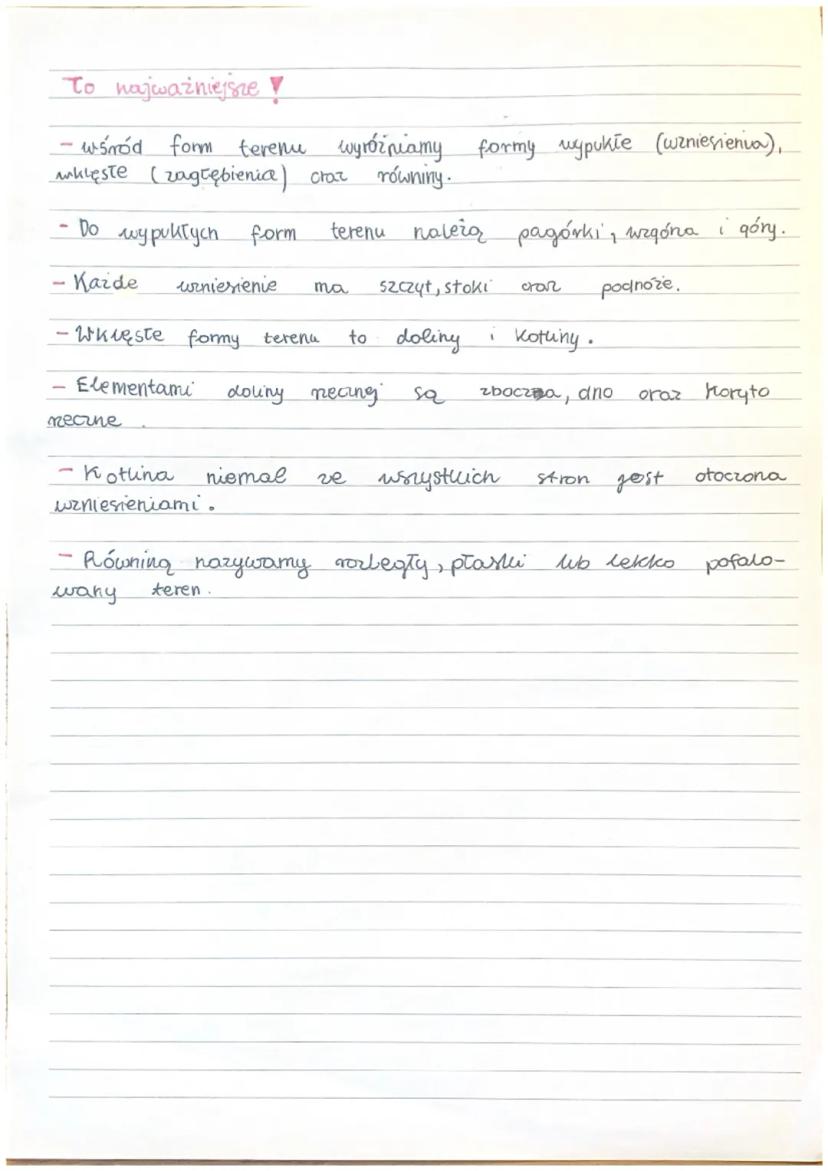 To najważniejsze!
- wśród form terenu wyróżniamy formy wypukłe (wzniesienia),
wklęsłe (zagłębienia) oraz równiny.
- Do wypukłych form terenu należą pagórki, wzgórza i góry.
- Każde wzniesienie ma szczyt, stoki oraz podnóże.
- Wklęsłe formy terenu to doliny i kotliny.
- Elementami doliny rzecznej są zbocza, dno oraz koryto
rzeczne.
- Kotlina niemal ze wszystkich stron jest otoczona
wzniesieniami.
- Równiną nazywamy rozległy, płaski lub lekko pofalo-
wany teren.